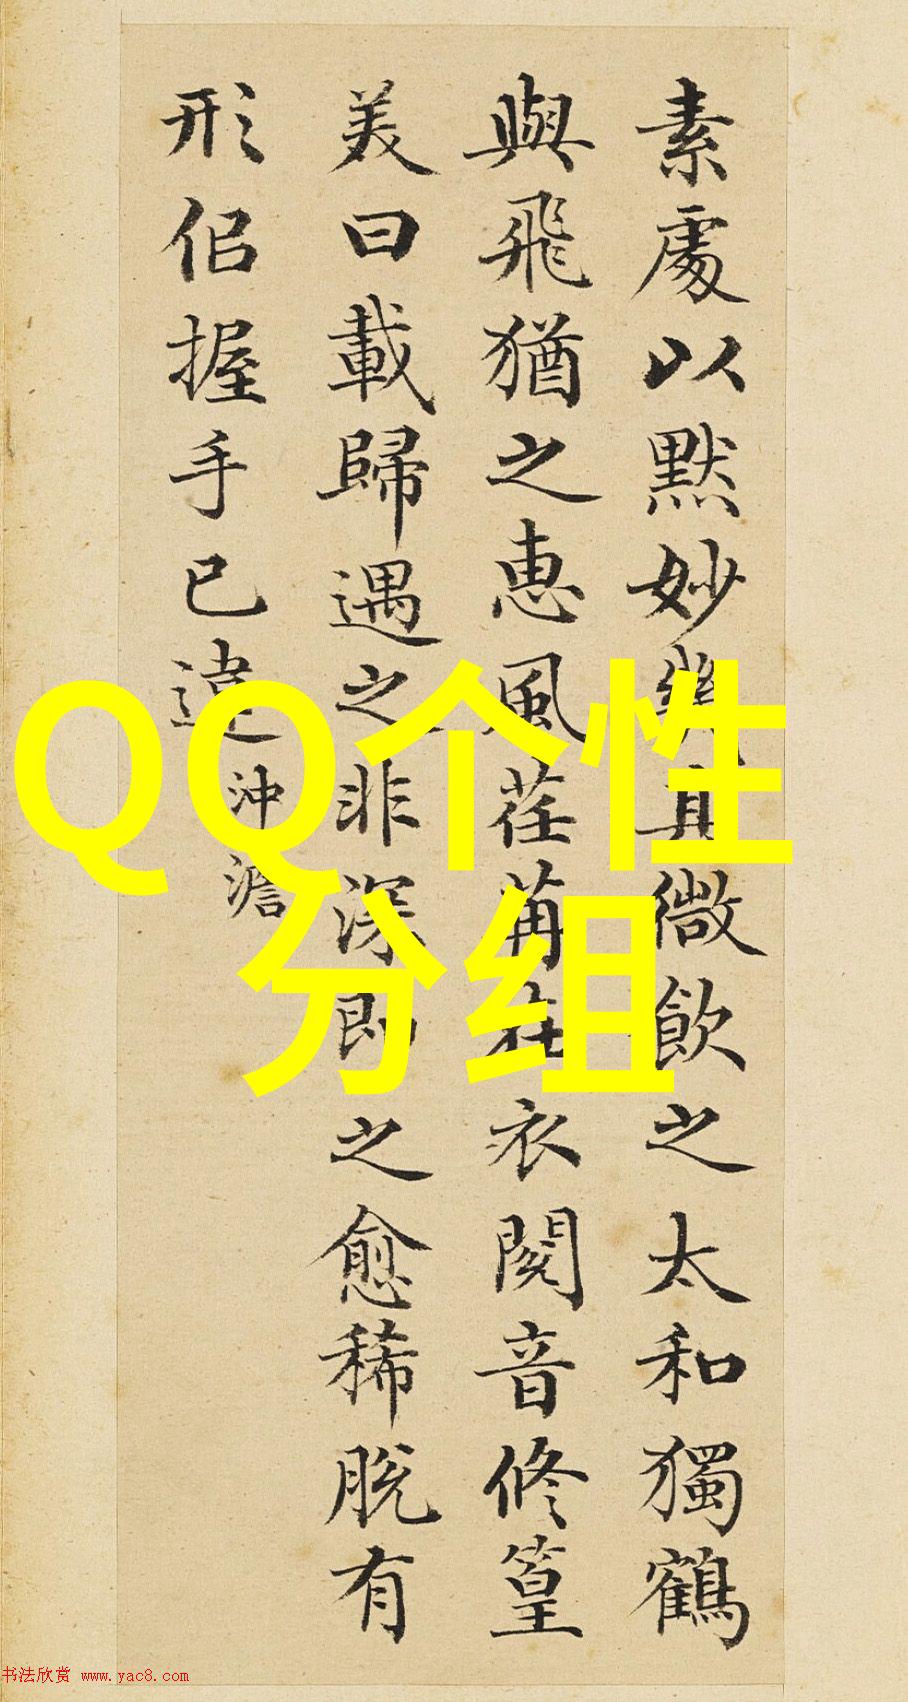 素處以默妙幾其微飲之太和獨鶴
與飛猶之惠風荏苒在衣閱音修篁
美曰載歸遇之非深即之愈稀脫有
形佀握手已違
沖澹
QQ个性
分组
书法欣赏 www.yac8.com